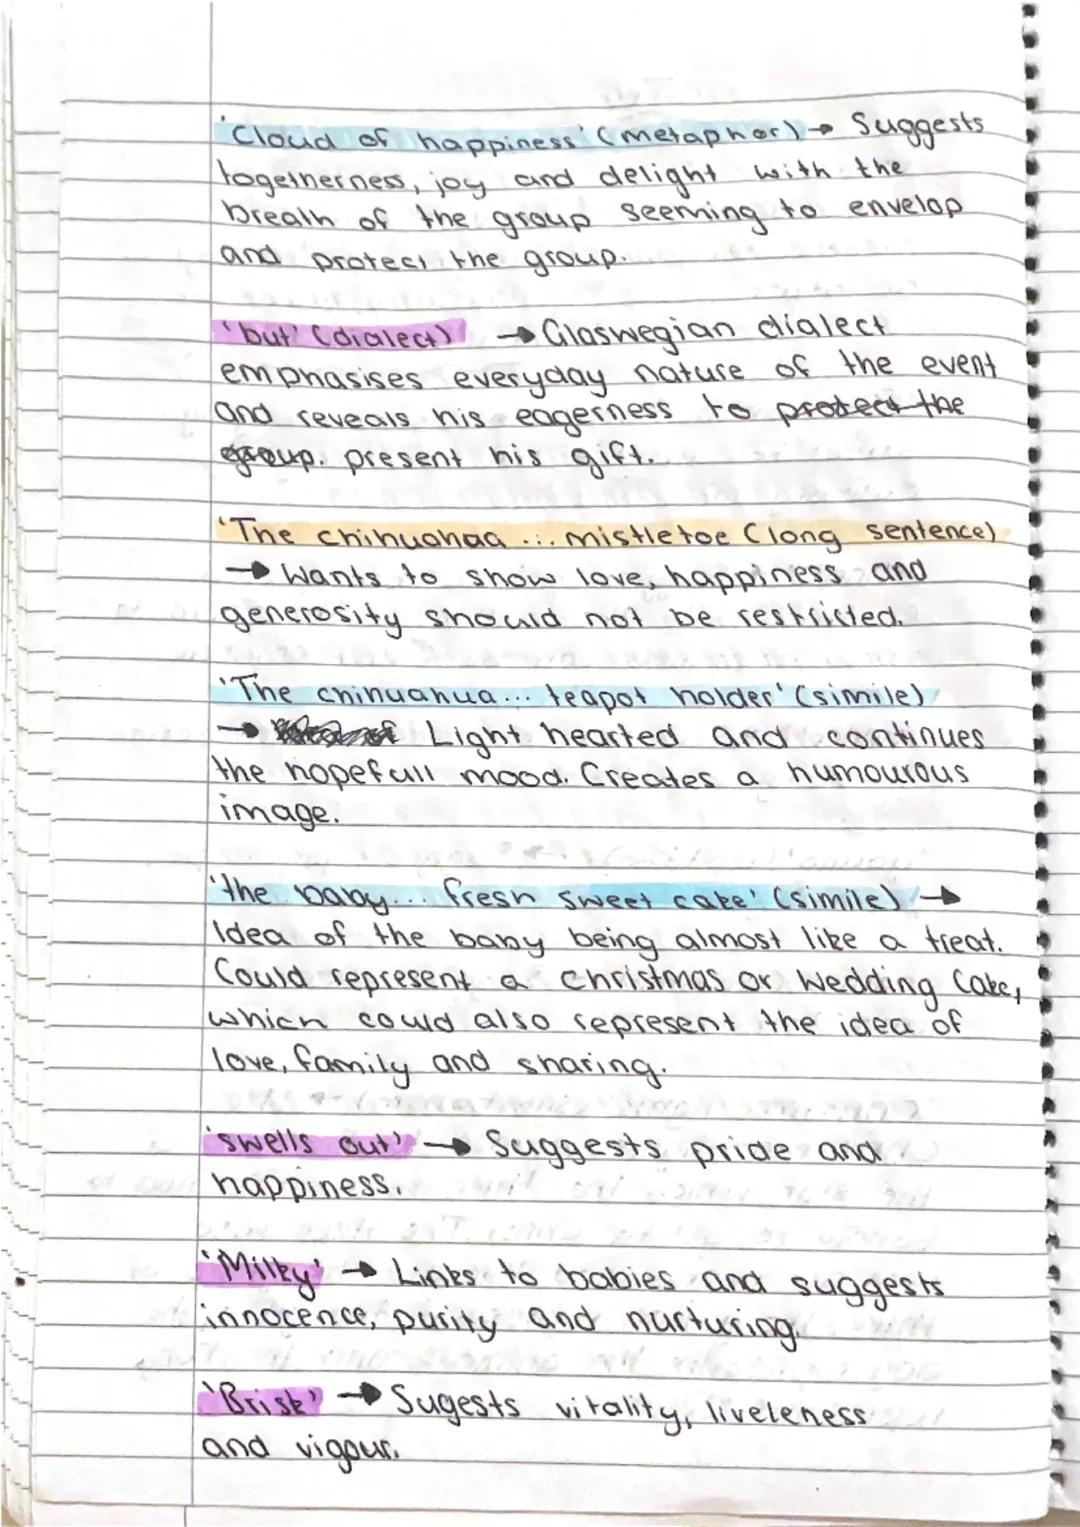 'Cloud of happiness' (metaphor) → Suggests
togetherness, joy and delight with the
breath of the group seeming to envelop
and protect the group.
'but' (dialect) → Glaswegian dialect
emphasises everyday nature of the event
and reveals his eagerness to protect the
group. present his gift.
'The chihuahaa ... mistletoe (long sentence)
→ Wants to show love, happiness and
generosity should not be restricted.
'The chihuahua... teapot holder' (simile)
→ Light hearted and continues
the hopefull mood. Creates a humourous
image.
'the baby... fresh sweet cake' (simile) →
Idea of the baby being almost like a treat.
Could represent a christmas or wedding cake,
which could also represent the idea of
love, family and sharing.
'swells out' → Suggests pride and
happiness.
'Milky' → Links to babies and suggests
innocence, purity and nurturing.
'Brisk' → Sugests vitality, liveleness
and vigour.